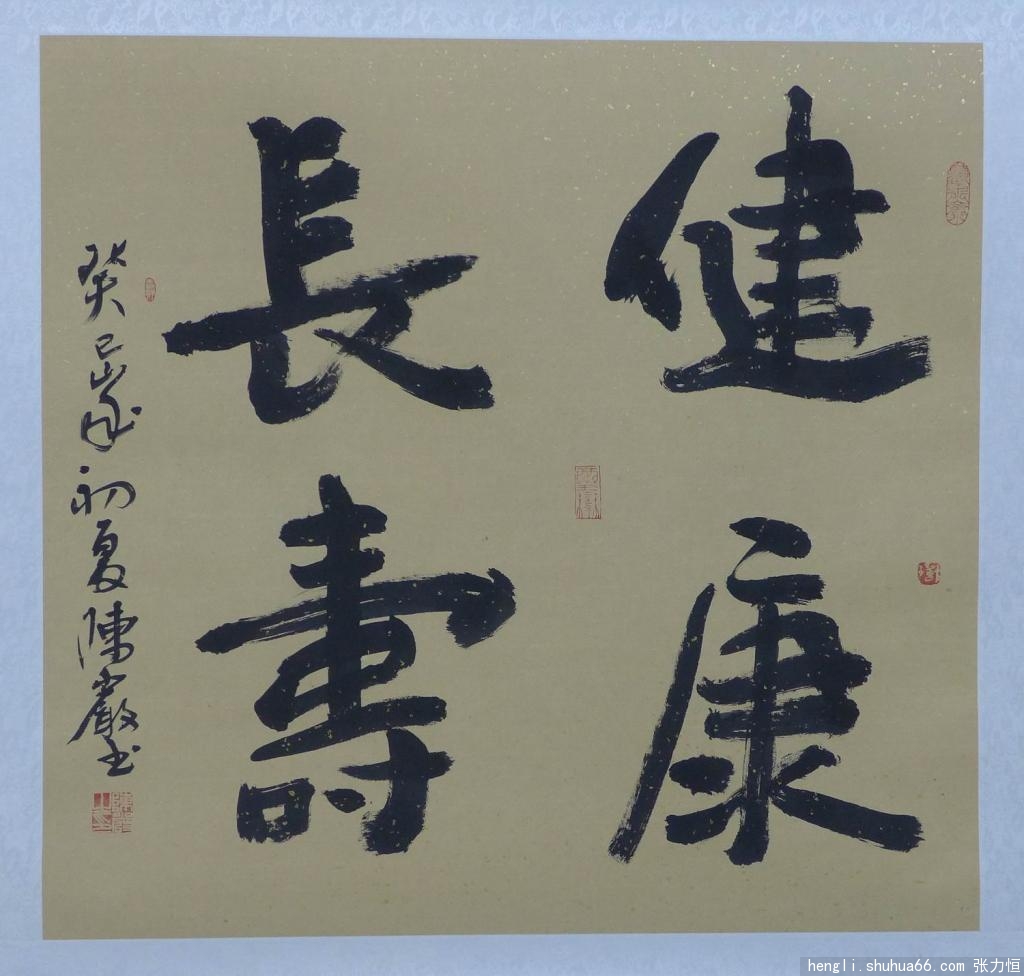 健康
長壽
癸巳歲初夏陳巖书
hengli.shuhua66.com 张力恒